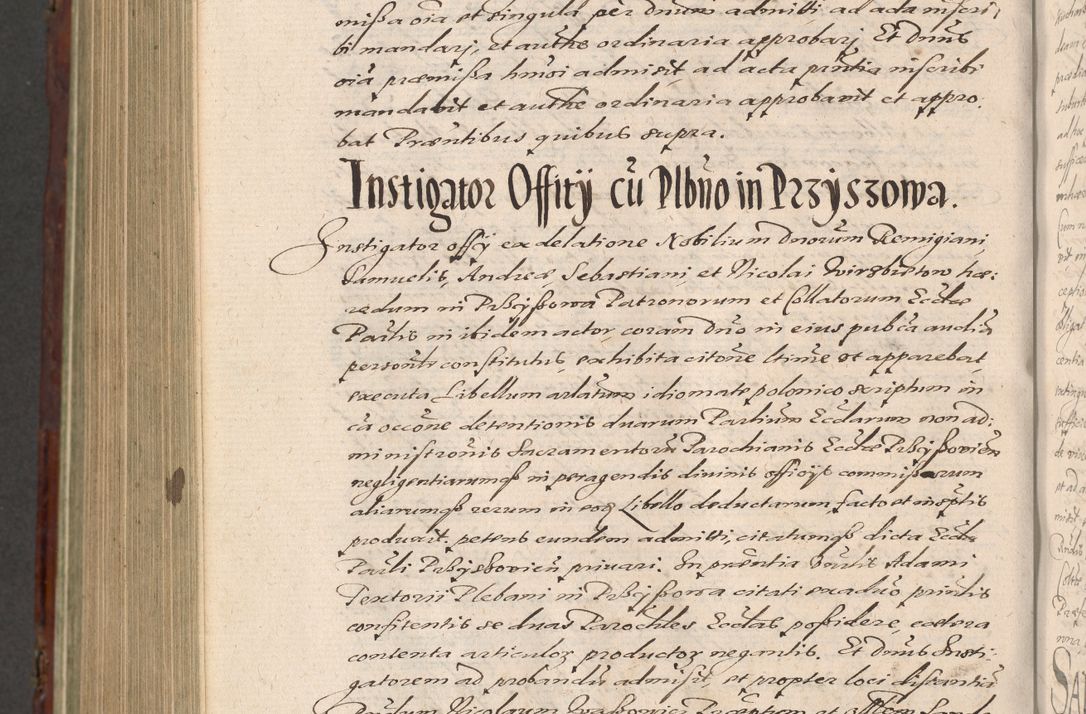 missa oia et singula per Dnum admitti ad acta inscri,
bi mandarj, et authe ordinaria approbarj Et Dnus
oia præmissa hmoi admisit, ad acta pntia inscribi
mandavit et authe ordinaria approbavit et appro,
bat Præntibus quibus supra.
Instigator Officij cū Plbno in Przyszowa.
Instigator officij ex delatione Nobilium dnorum Remigiani,
Samuelis, Andreæ, Sebastiani, et Nicolai Wirzbiętow hæ:
redum in Przyssowa Patronorum et Collatorum Ecclæ
Paɼlis in ibidem actor, coram Dno in eius pubca audia
personlr constitutus, exhibita citone ltime ut apparebat
executa, Libellum arlatum idiomate polonico scriptum in
ca occōne detentionis duarum Parlium Ecclarum non ad:
ministronis Sacramentorū Parochianis Ecclæ Przyssovien
negligentiarumqs in peragendis divinis officijs commissarum
aliarumqs rerum in eoɀ Libello deductarum, facto et inscptis
produxit. petens eundem admitti, citatumqs dicta Eccla
Parli Przyszovien privari. In præntia Adami
Textorii Plebani in Przyssowa citati præntis
confitentis se duas Parochles Ecclas possidere, cætera
contenta articulor productor negantis. Et Dnus Insti,
gatorem ad probandū admisit, et propter loci distantia